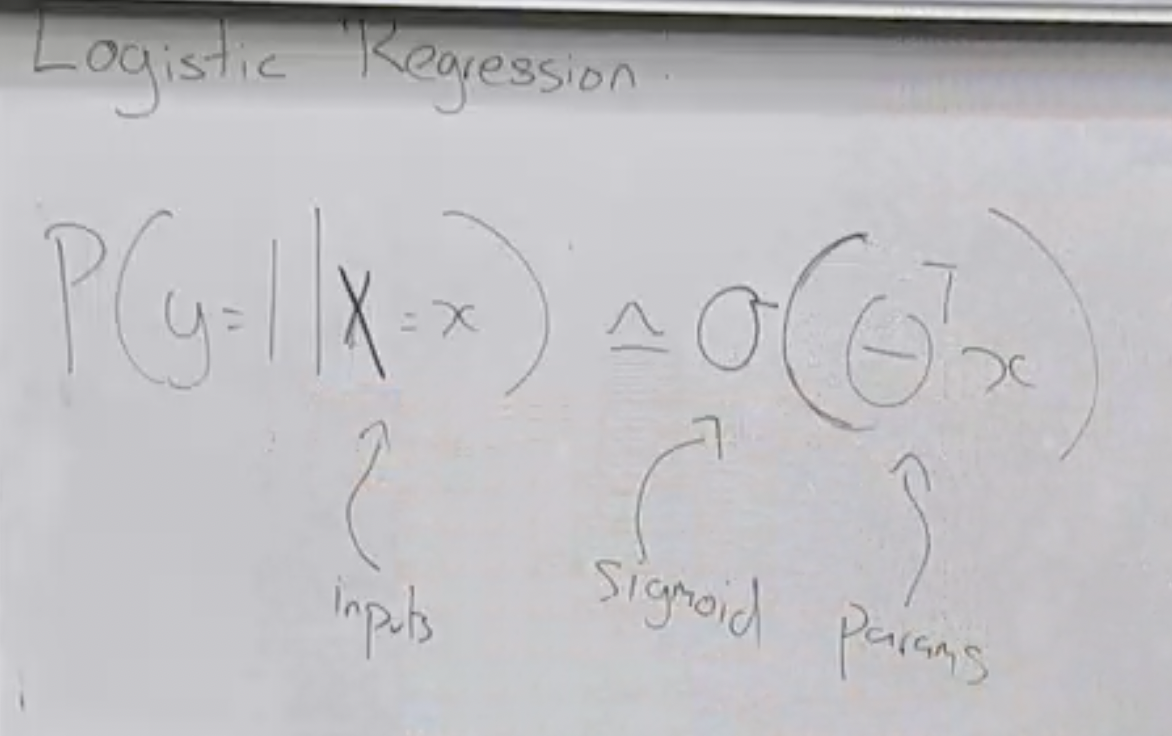 Logistic Regression.
P(y=1|X=x) ≙ σ(Θᵀx)
inputs
sigmoid
params